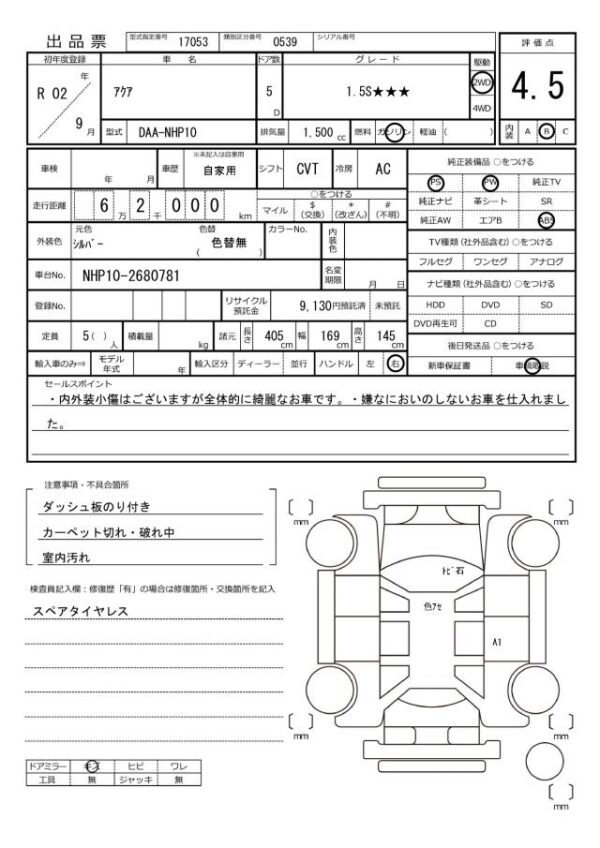 出品票 型式指定番号 17053 類別区分番号 0539 シリアル番号
評価点
4.5
内装 A B C
初年度登録 車名 ドア数 グレード 駆動
R 02 年 9 月
アクア
5 D
1.5S★★★
2WD
4WD
型式 DAA-NHP10 排気量 1,500 cc 燃料 ガソリン 軽油 ( )
車検 年 月 車歴 ※未記入は自家用 自家用 シフト CVT 冷房 AC
走行距離 6 万 2 千 0 0 0 km
○をつける
マイル $(交換) *(改ざん) #(不明)
外装色 元色 シルバー 色替 色替無 ( ) カラーNo. 内装色
車台No. NHP10-2680781 名変期限 月 日
登録No. リサイクル預託金 9,130円預託済 未預託
定員 5( )人 積載量 kg 諸元 長さ 405 cm 幅 169 cm 高さ 145 cm
輸入車のみ⇒ モデル年式 年 輸入区分 ディーラー 並行 ハンドル 左 右
純正装備品 ○をつける
PS PW 純正TV
純正ナビ 革シート SR
純正AW エアB ABS
TV種類(社外品含む)○をつける
フルセグ ワンセグ アナログ
ナビ種類(社外品含む)○をつける
HDD DVD SD
DVD再生可 CD
後日発送品 ○をつける
新車保証書 車輌取説
セールスポイント
・内外装小傷はございますが全体的に綺麗なお車です。・嫌なにおいのしないお車を仕入れまし
た。
注意事項・不具合箇所
ダッシュ板のり付き
カーペット切れ・破れ中
室内汚れ
検査員記入欄：修復歴「有」の場合は修復箇所・交換箇所を記入
スペアタイヤレス
ドアミラー キズ ヒビ ワレ
工具 無 ジャッキ 無
[ ] mm
[ ] mm
トビ石
色アセ
A1
[ ] mm
[ ] mm
[ ] mm